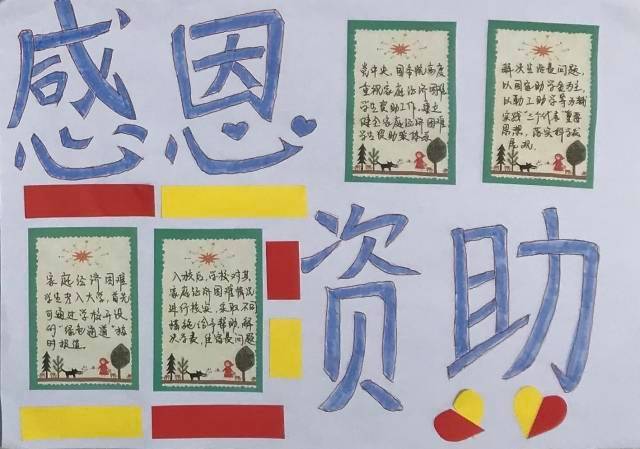 感恩
党中央、国务院高度
重视家庭经济困难
学生资助工作，建立
健全家庭经济困难
学生资助政策体系
解决生活费问题，
以国家助学金为主，
以勤工助学等为辅
实践“三个代表”重要
思想，落实科学发
展观。
家庭经济困难
学生考入大学，首先
可通过学校开设
的“绿色通道”按
时报道。
入校后，学校对其
家庭经济困难情况
进行核实，采取不同
措施给予帮助，解
决学费、住宿费问题
资助